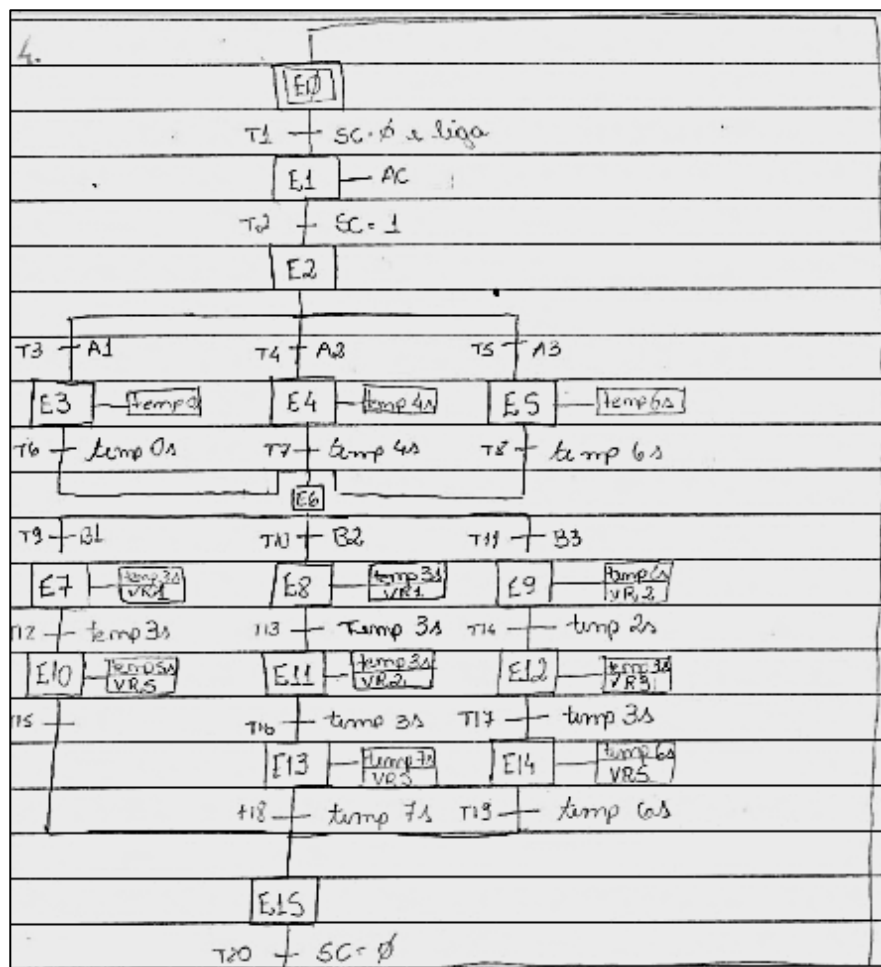 4.
EØ
T1 SC=Ø e liga
E1 AC
T2 SC=1
E2
T3 A1 T4 A2 T5 A3
E3 temp0 E4 temp4s E5 temp6s
T6 temp 0s T7 temp 4s T8 temp 6s
E6
T9 B1 T10 B2 T11 B3
E7 temp3s E8 temp3s E9
VR1 VR1 VR2
T12 temp 3s T13 Temp 3s T14 temp 2s
E10 temp5s E11 temp3s E12 temp3s
VR5 VR2 VR3
T15 T16 temp 3s T17 temp 3s
E13 temp7s E14 temp6s
VR5
T18 temp 7s T19 temp 6s
E15
T20 SC=Ø